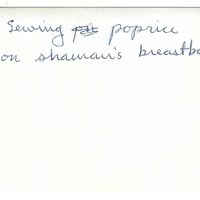 Sewing poprice
on shaman's breastbo